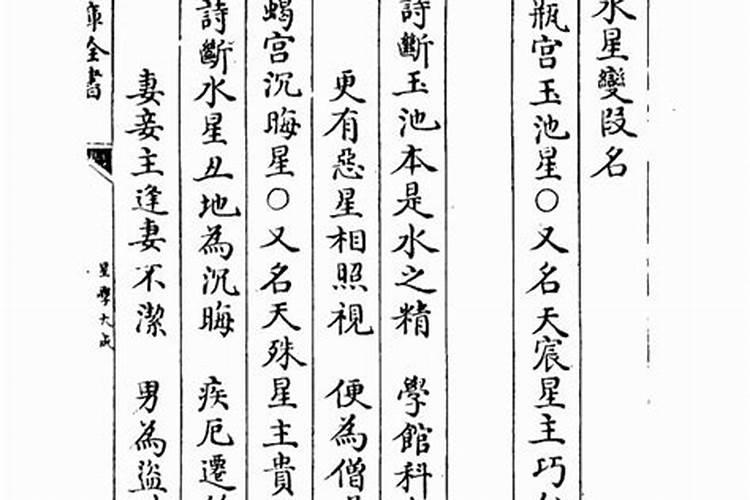 水星變段名
瓶宫玉池星○又名天宸星主巧
詩斷玉池本是水之精 學館科
更有惡星相照視 便為僧
蝎宫沉晦星○又名天殊星主貴
詩斷水星丑地為沉晦 疾厄遷
妻妾主逢妻不潔 男為盜
星學大成
庫全書